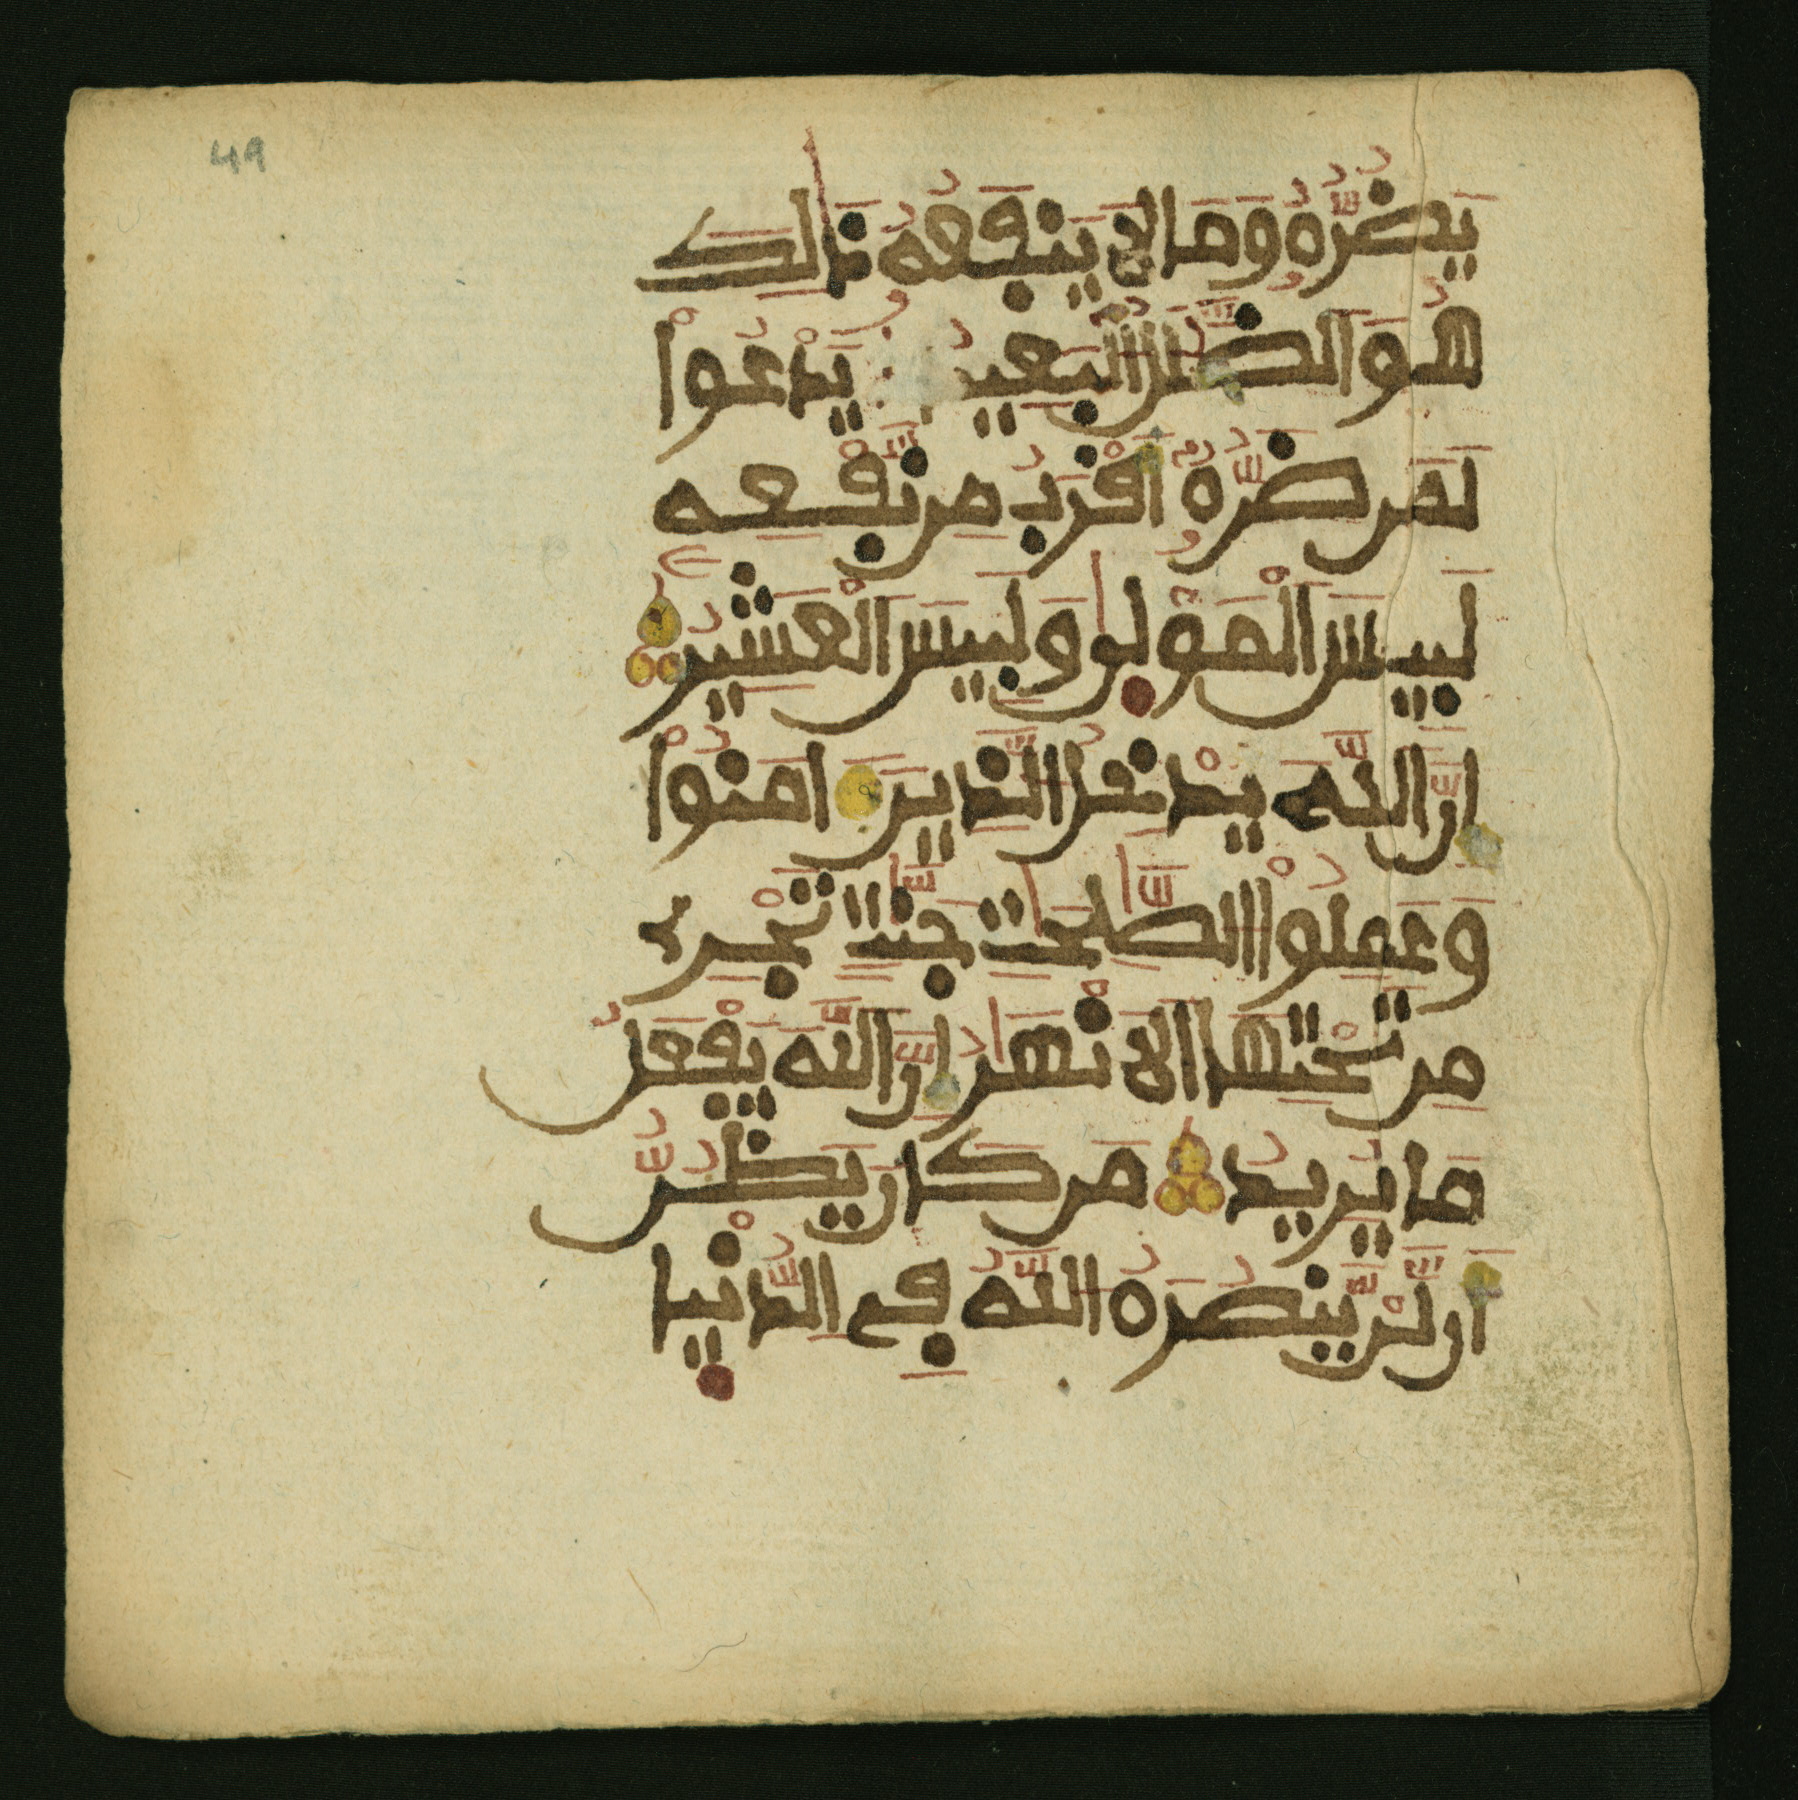 49
يَضُرُّهُۥ وَمَا لَا يَنفَعُهُۥ ذَٰلِكَ
هُوَ الضَّلَٰلُ الْبَعِيدُ يَدْعُواْ
لَمَن ضَرُّهُۥٓ أَقْرَبُ مِن نَّفْعِهِۦ
لَبِيسَ الْمَوْلىٰ وَلَبِيسَ الْعَشِيرُ
إِنَّ اللَّهَ يُدْخِلُ الَّذِينَ ءَامَنُواْ
وَعَمِلُواْ الصَّٰلِحَٰتِ جَنَّٰتٍ تَجْرِے
مِن تَحْتِهَا الَانْهَٰرُ إِنَّ اللَّهَ يَفْعَلُ
مَا يُرِيدُ مَن كَانَ يَظُنُّ
أَن لَّنْ يَّنصُرَهُ اللَّهُ فِے الدُّنْيا